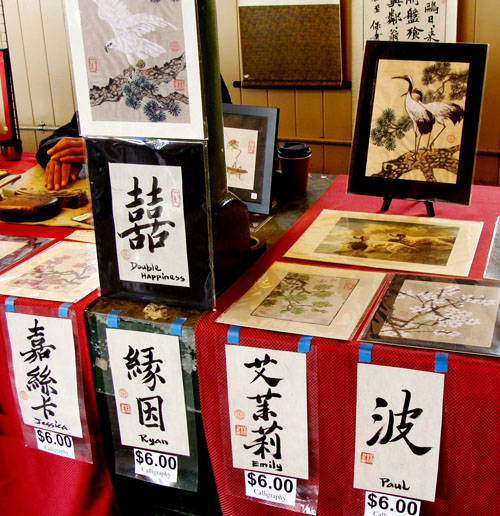 囍
Double
Happiness
嘉絲卡
Jessica
$6.00
緣因
Ryan
$6.00
Calligraphy
艾茉莉
Emily
$6.00
Calligraphy
波
Paul
$6.00
Calligraphy